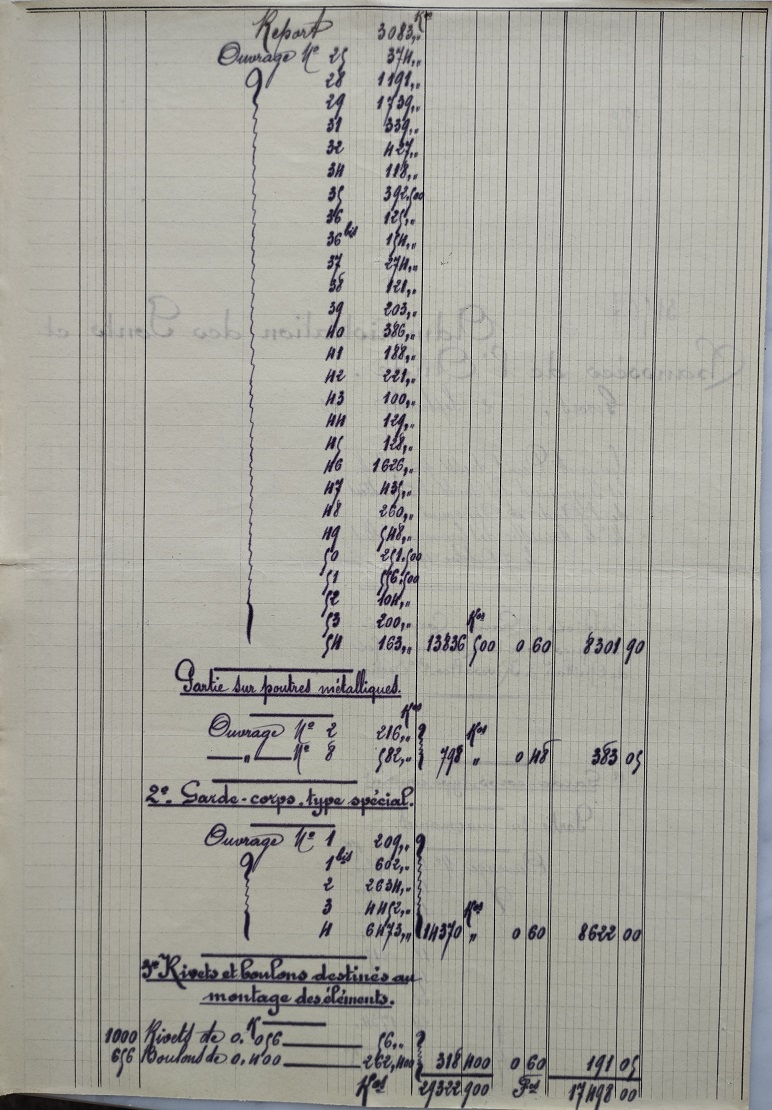 Report 3083,, Kos
Ouvrage No 25 374,,
28 1191,,
29 1739,,
31 339,,
32 427,,
34 118,,
35 392.500
36 125,,
36 bis 154,,
37 274,,
38 121,,
39 203,,
40 386,,
41 188,,
42 221,,
43 100,,
44 129,,
45 128,,
46 1626,,
47 435,,
48 260,,
49 548,,
50 251.500
51 556.500
52 104,,
53 200,, Kos
54 163,, 13836 500 0 60 8301 90
Partie sur poutres métalliques.
Kos
Ouvrage No 2 216,, Kos
—„— No 8 582,, 798 „ 0 48 383 05
2o. Garde-corps. type spécial.
Ouvrage No 1 209,,
1 bis 602,,
2 2634,,
3 4452,, Kos
4 6473,, 14370 „ 0 60 8622 00
3o Rivets et boulons destinés au
montage des éléments.
1000 Rivets de 0.K056 56,,
656 Boulons de 0.400 262,400 318 400 0 60 191 05
Kos 29322 900 Pes 17498 00